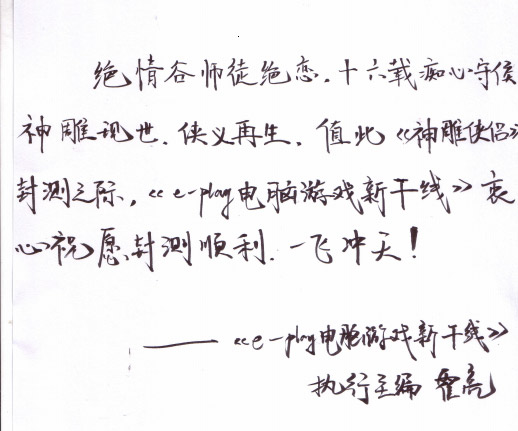 绝情谷师徒绝恋，十六载痴心守侯
神雕现世，侠义再生，值此《神雕侠侣》
封测之际，《e-play电脑游戏新干线》衷
心祝愿封测顺利，一飞冲天！
——《e-play电脑游戏新干线》
执行主编